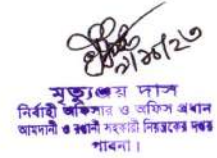 ২/১০/২৩
মৃত্যুঞ্জয় দাস
নির্বাহী অফিসার ও অফিস প্রধান
আমদানী ও রপ্তানী সহকারী নিয়ন্ত্রকের দপ্তর
পাবনা।